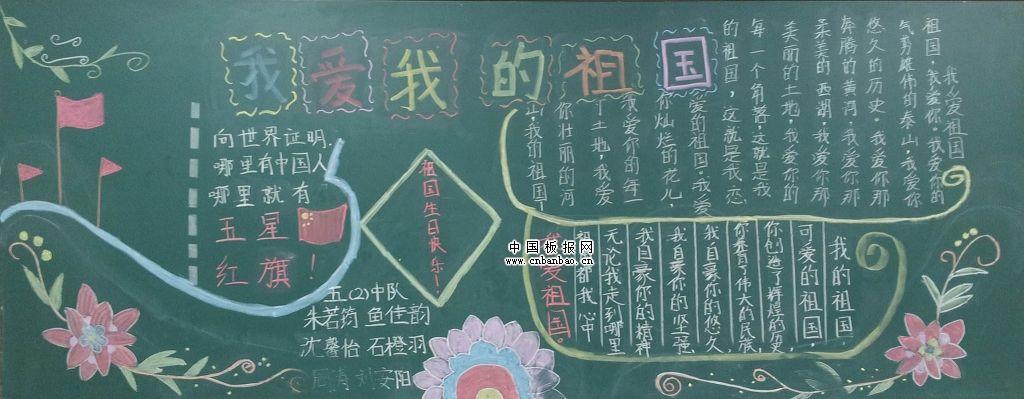 我爱我的祖国
向世界证明.
哪里有中国人
哪里就有
五星
红旗！
祖国生日快乐！
五(2)中队
朱若筠 鱼佳韵
沈馨怡 石橙羽
刘安阳
我爱祖国
祖国，我爱你。我爱你的
气势雄伟的泰山，我爱你
悠久的历史。我爱你那
奔腾的黄河，我爱你那
柔美的西湖，我爱你那
美丽的土地，我爱你的
每一个角落，这就是我
的祖国，这就是我恋
爱的祖国。我爱
你灿烂的花儿，
我爱你的每一
寸土地，我爱
你壮丽的河
山，我的祖国！
我的祖国
可爱的祖国，
你创造了辉煌的历史，
你养育了伟大的民族，
我自豪你的悠久，
我自豪你的坚强
我自豪你的精神
无论我走到哪里
都我心中
爱祖国。
中国板报网
www.cnbanbao.cn